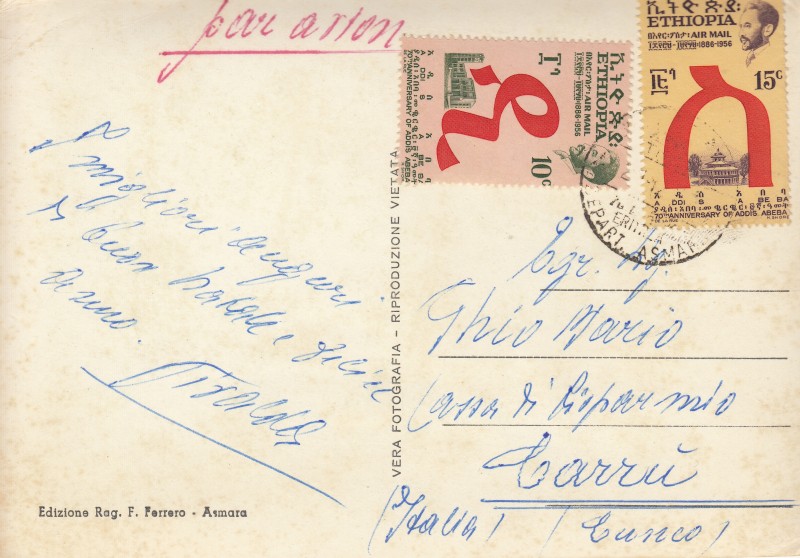 par avion
I migliori auguri
di buon Natale e felice
anno.
Edizione Rag. F. Ferrero - Asmara
VERA FOTOGRAFIA - RIPRODUZIONE VIETATA
ኢትዮጵያ
ETHIOPIA
በአየር፡ፖስታ፡AIR MAIL
1886-1956
10c
አ ዲ ስ አ በ ባ
A DDI S A BE BA
70TH ANNIVERSARY OF ADDIS ABEBA
ኢትዮጵያ
ETHIOPIA
በአየር፡ፖስታ፡AIR MAIL
1886-1956
15c
አ ዲ ስ አ በ ባ
A DDI S A BE BA
70TH ANNIVERSARY OF ADDIS ABEBA
Egr. Sig.
Ghio Mario
Cassa di Risparmio
Carrù
(Italia) (Cuneo)